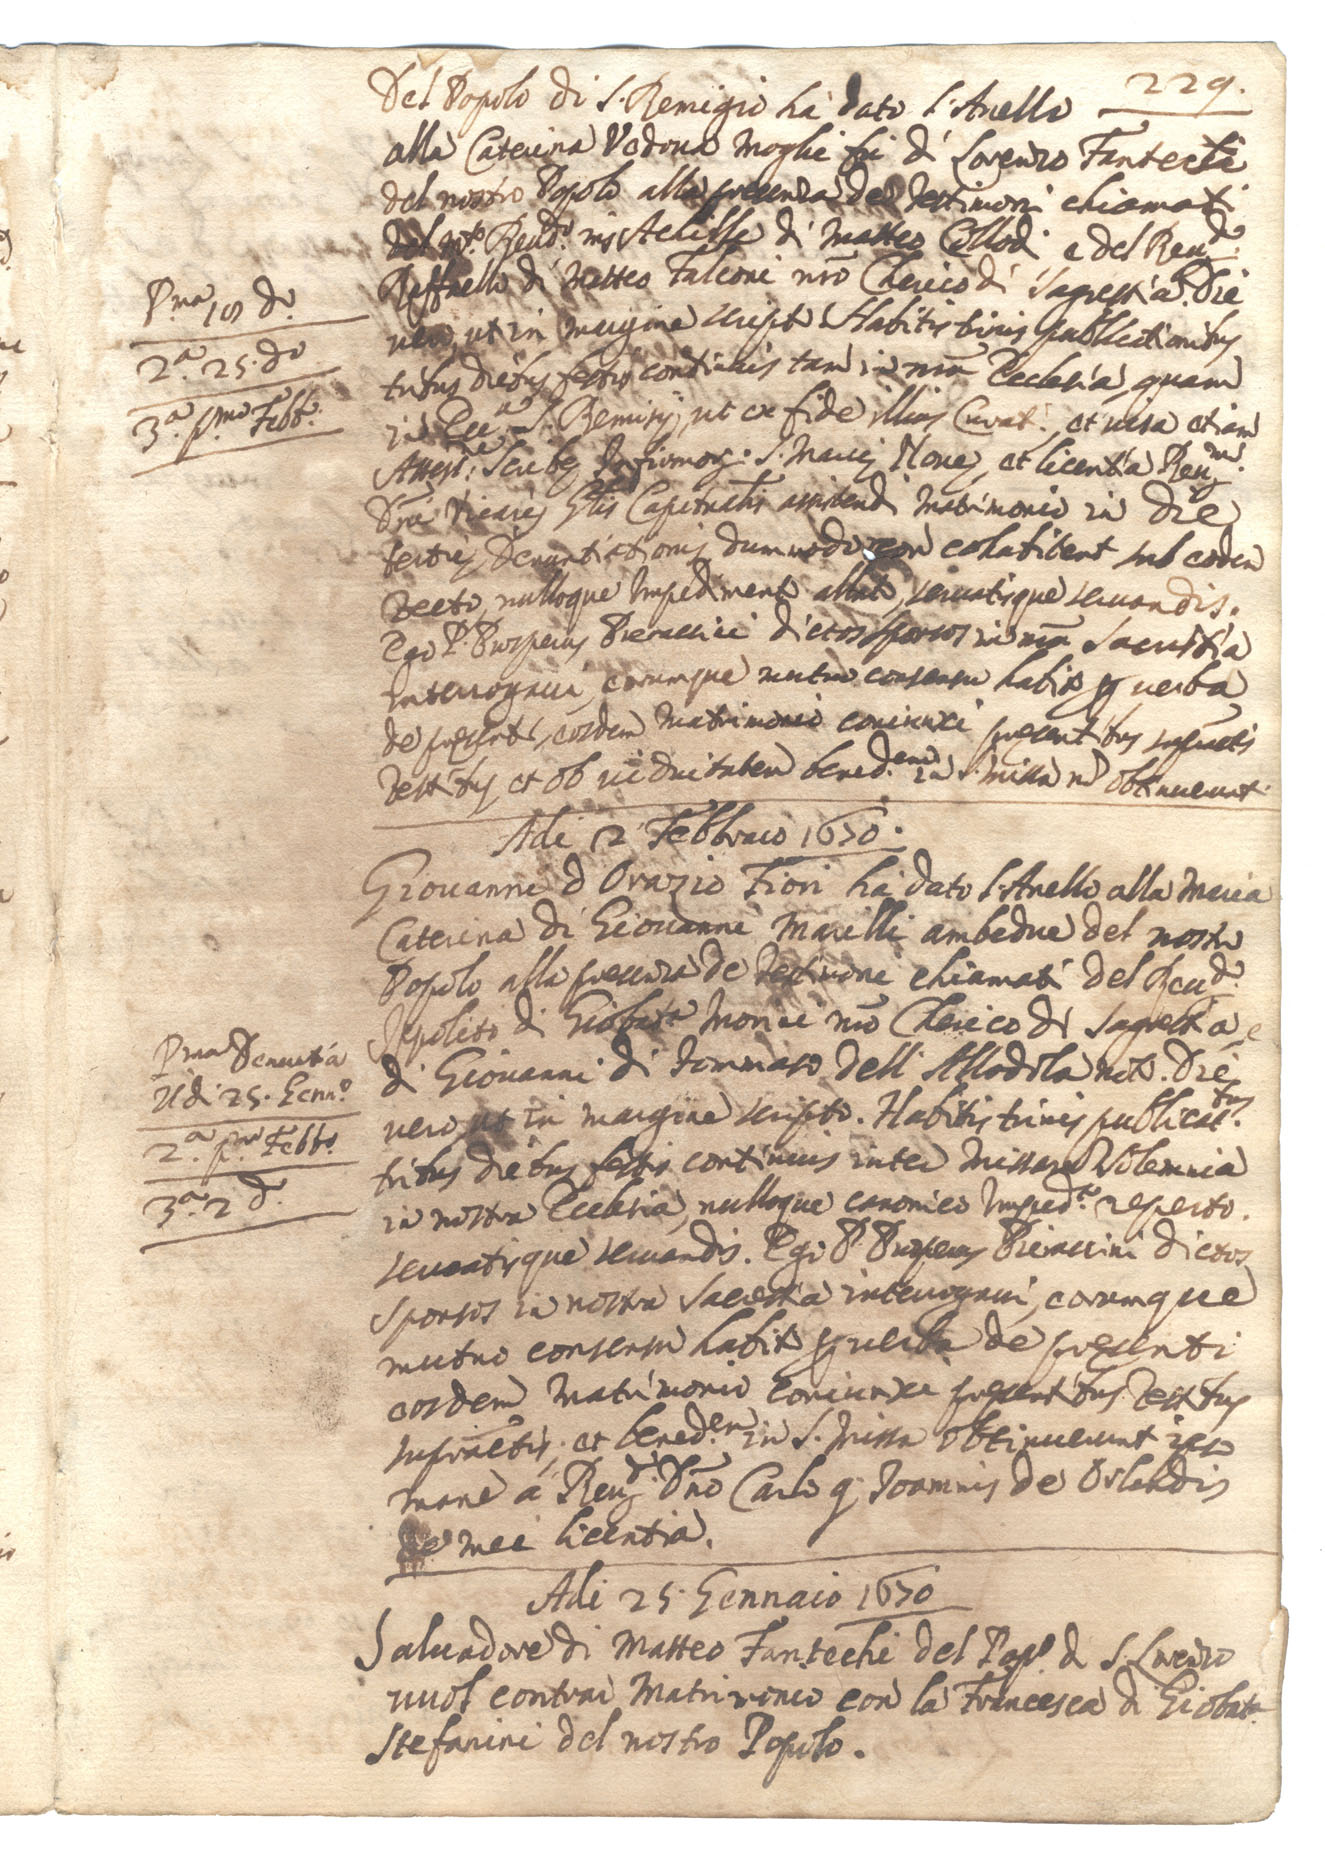 229.
Del Popolo di S. Remigio ha dato l'Anello
alla Caterina Vedova Moglie fu di Lorenzo Fantechi
del nostro Popolo alla presenza de Testimoni chiamati
del Achille di Matteo Collodi e del Reu.do
Raffaello di Matteo Falconi nro Cherico di Sagrestia. Die
uero, ut in margine scripto. Habitis trinis publicationibus
tribus diebus festis continuis tam in nra Ecclesia, quam
in S. Remigij, ut ex fide illius Curati, et uisa etiam
S. Marię Nouę, et licentia Reu.mi
Dni Vicarij Gñlis Capitularis assistendi Matrimonio in Die
tertię Denuntiationis dummodo non cohabitent sub eodem
Tecto, nulloque Impedimento, seruatisque seruandis.
Ego P. Prosperus Pieraccini dictos sponsos in nra Sacristia
interrogaui, eorumque mutuo consensu habito p uerba
de pręsenti, eosdem Matrimonio coniunxi pręsentibus
testibus, et ob uiduitatem bened.em in S. Missa nō obtinuerunt.
P.ma 18 d.o
2.a 25. d.o
3.a p.mo Febb.o
Adi 2 Febbraio 1670.
Giouanni d'Orazio Fiori ha dato l'Anello alla Maria
Caterina di Giouanni Marilli ambedue del nostro
Popolo alla presenza de Testimoni chiamati del Reu.do
Ipolito di Giobatta Morini nro Cherico di Sagrestia, e
di Giouanni di Tommaso dell'Allodola noto. Die
uero, ut in margine scripto. Habitis trinis publicat.bus
tribus diebus festis continuis inter Missarum Solemnia
in nostra Ecclesia, nulloque canonico Imped.o reperto.
seruatisque seruandis. Ego P. Prosperus Pieraccini dictos
sponsos in nostra Sacrestia interrogaui, eorumque
mutuo consensu habito p uerba de pręsenti
eosdem Matrimonio coniunxi pręsentibus Testibus
supradictis, et bened.em in S. Missa obtinuerunt
mane a Reu.do Dno Carlo q. Ioannis de Orlandis
de mei licentia.
P.ma Denuntia
Adi 25. Genn.o
2.a p.mo Febb.o
3.a 2 d.o
Adi 25. Gennaio 1670
Saluadore di Matteo Fantechi del Pop.o di S. Lorenzo
uuol contrar Matrimonio con la Francesca di Giobatta
Stefanini del nostro Popolo.